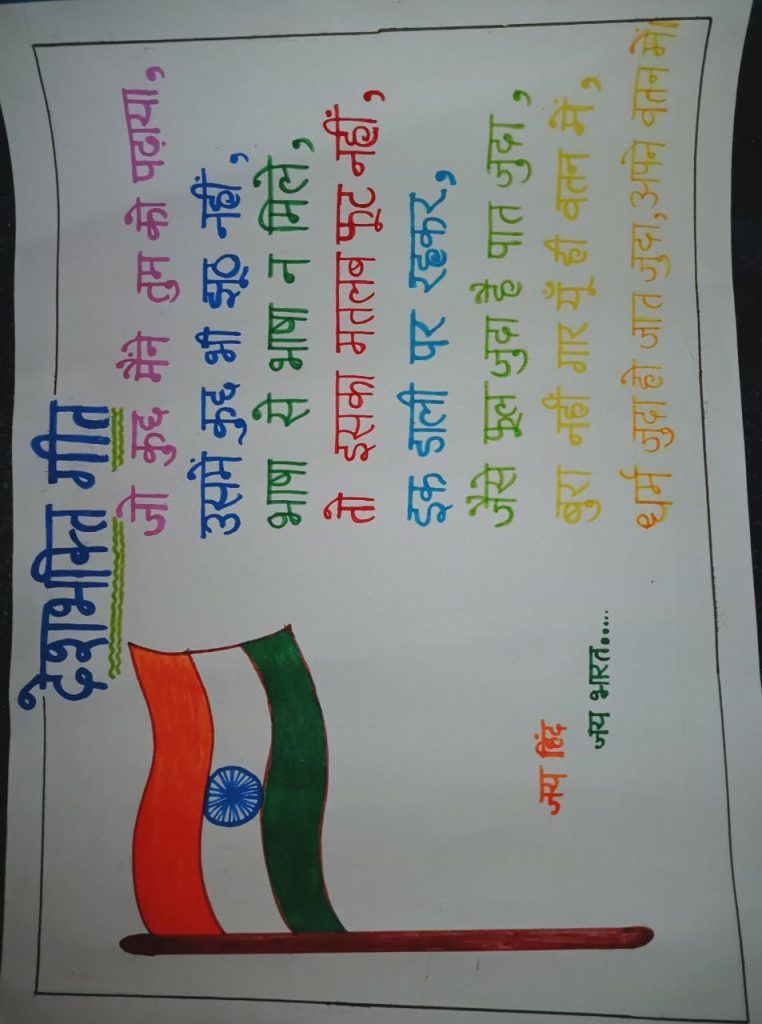 देशभक्ति गीत
जो कुछ मैंने तुम को पढ़ाया,
उसमें कुछ भी झूठ नहीं,
भाषा से भाषा न मिले,
तो इसका मतलब फूट नहीं,
इक डाली पर रहकर,
जैसे फूल जुदा है पात जुदा,
बुरा नहीं गार यूँ ही वतन में,
धर्म जुदा हो जात जुदा, अपने वतन में।
जय हिंद
जय भारत.....